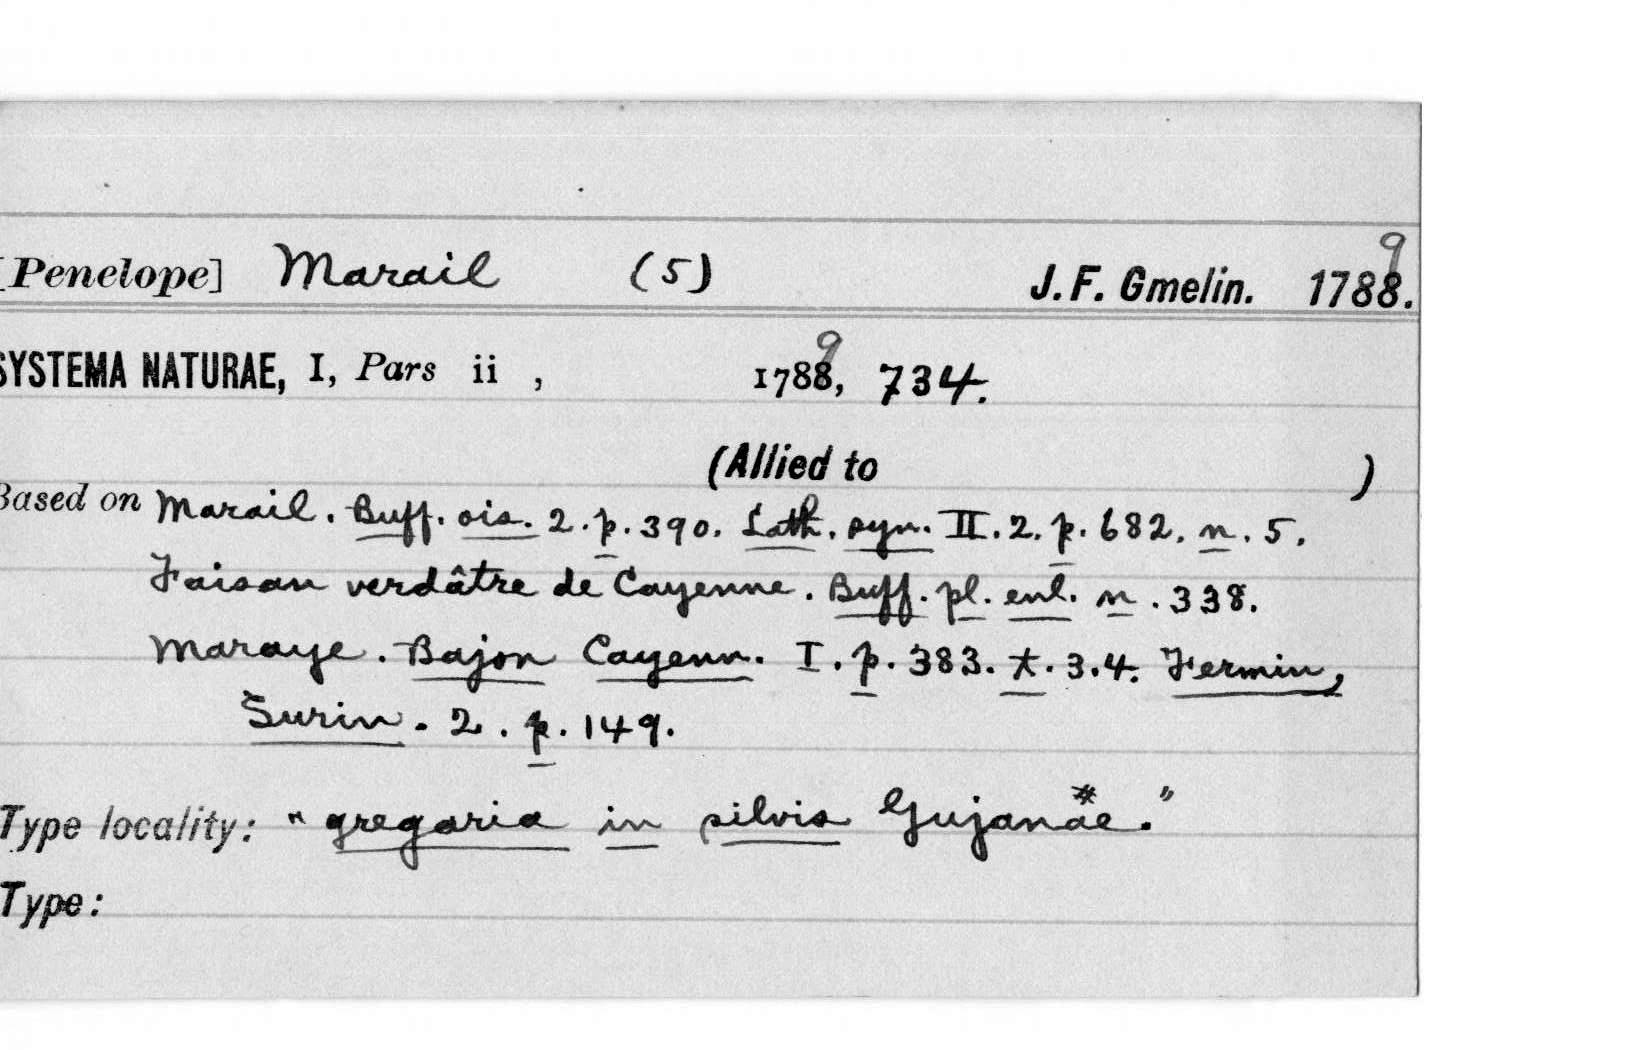 [Penelope] Marail (5) J. F. Gmelin. 1788. 9
SYSTEMA NATURAE, I, Pars ii , 1788, 9 734.
(Allied to )
Based on Marail. Buff. ois. 2. p. 390. Lath. syn. II. 2. p. 682. n. 5.
Faisan verdâtre de Cayenne. Buff. pl. enl. n. 338.
Maraye. Bajon Cayenn. I. p. 383. t. 3.4. Fermin,
Surin. 2. p. 149.
Type locality: "gregaria in silvis Gujanae.#"
Type: